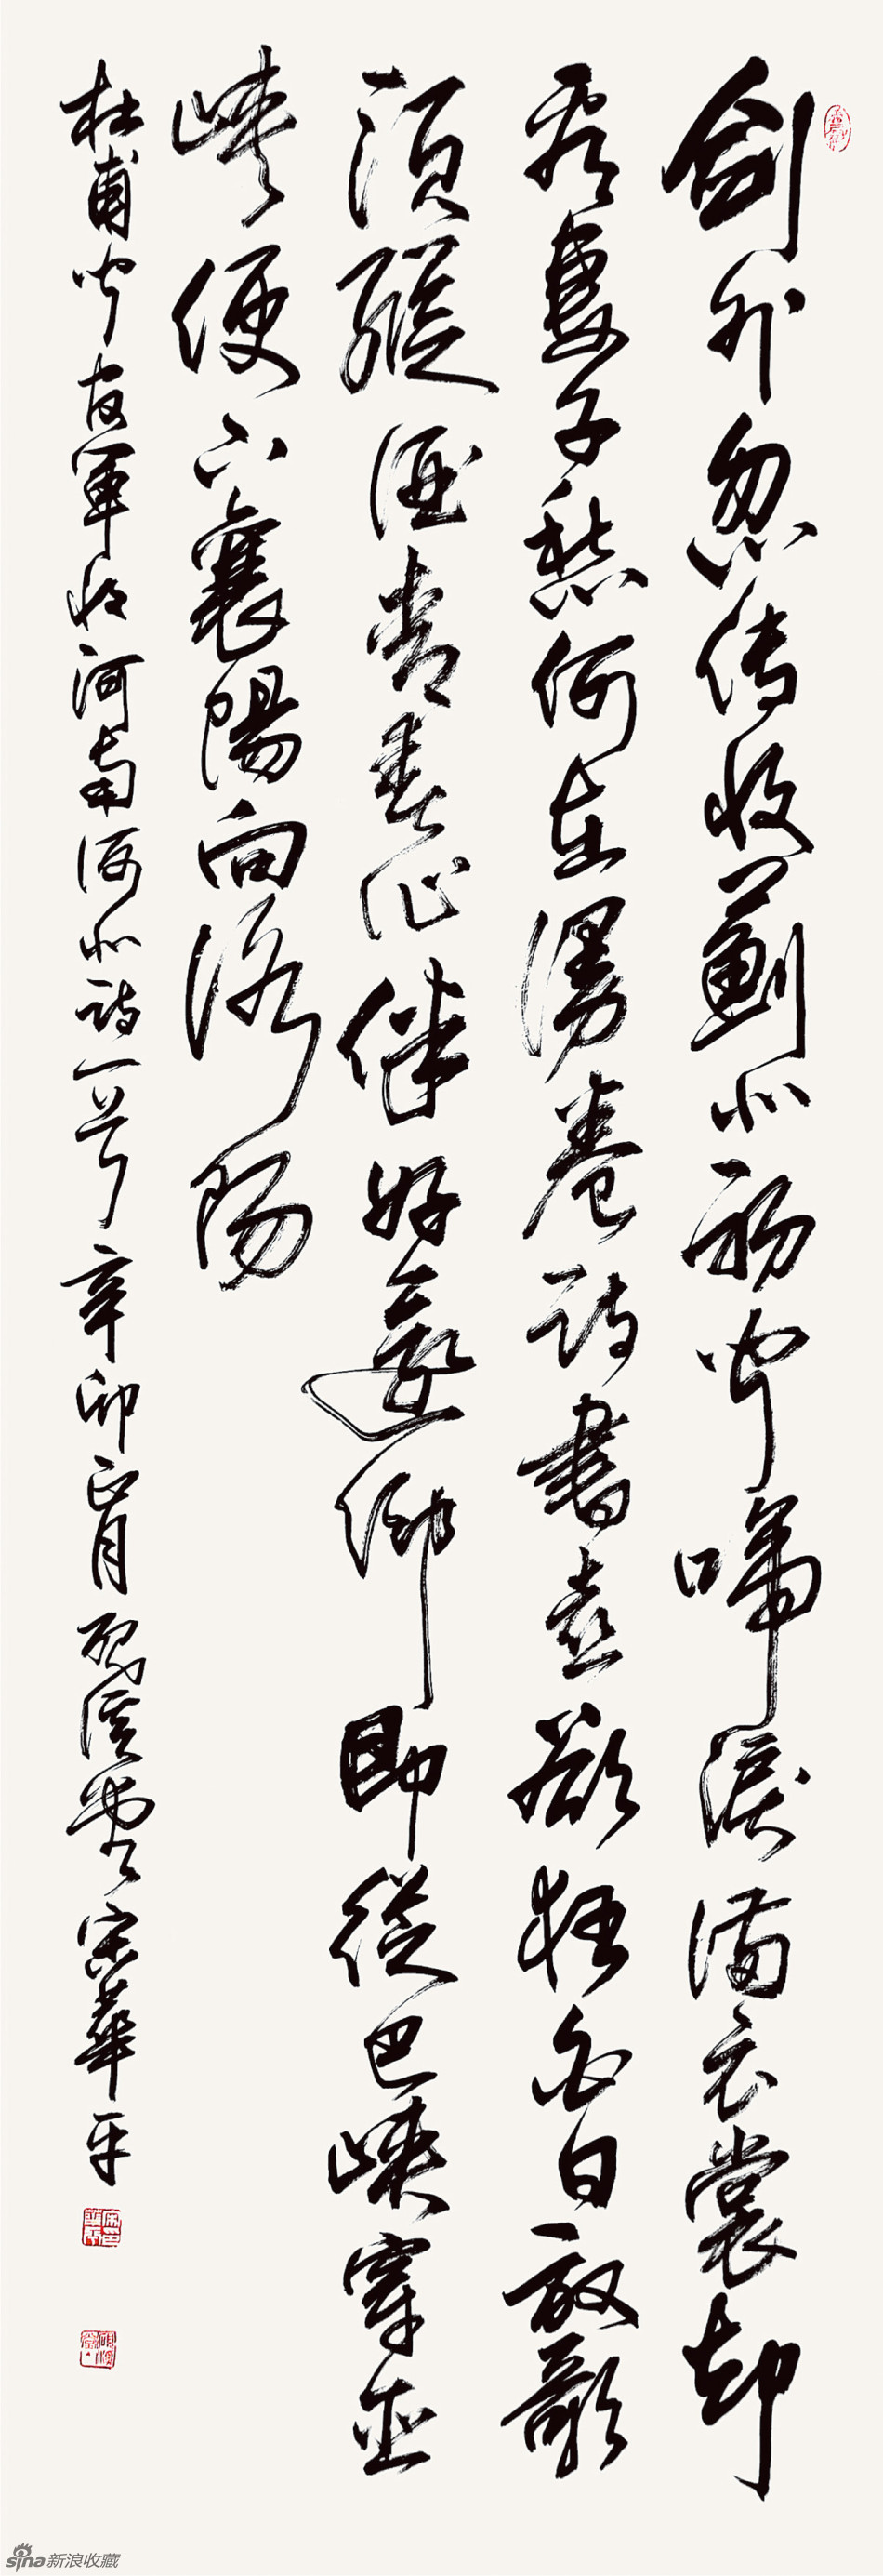 劍外忽传收薊北初聞啼淚滿衣裳却
看妻子愁何在漫卷詩書喜欲狂白日放歌
須縱酒青春作伴好還鄉即從巴峽穿巫
峽便下襄陽向洛陽
杜甫聞官軍收河南河北詩一首辛卯正月宋華平
sina新浪收藏